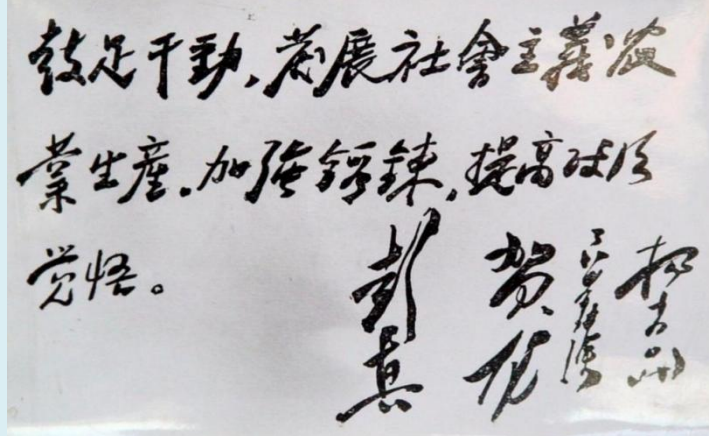 鼓足干勁，发展社會主義农
業生産，加强鍛鍊，提高政治
觉悟。
彭真
贺龙